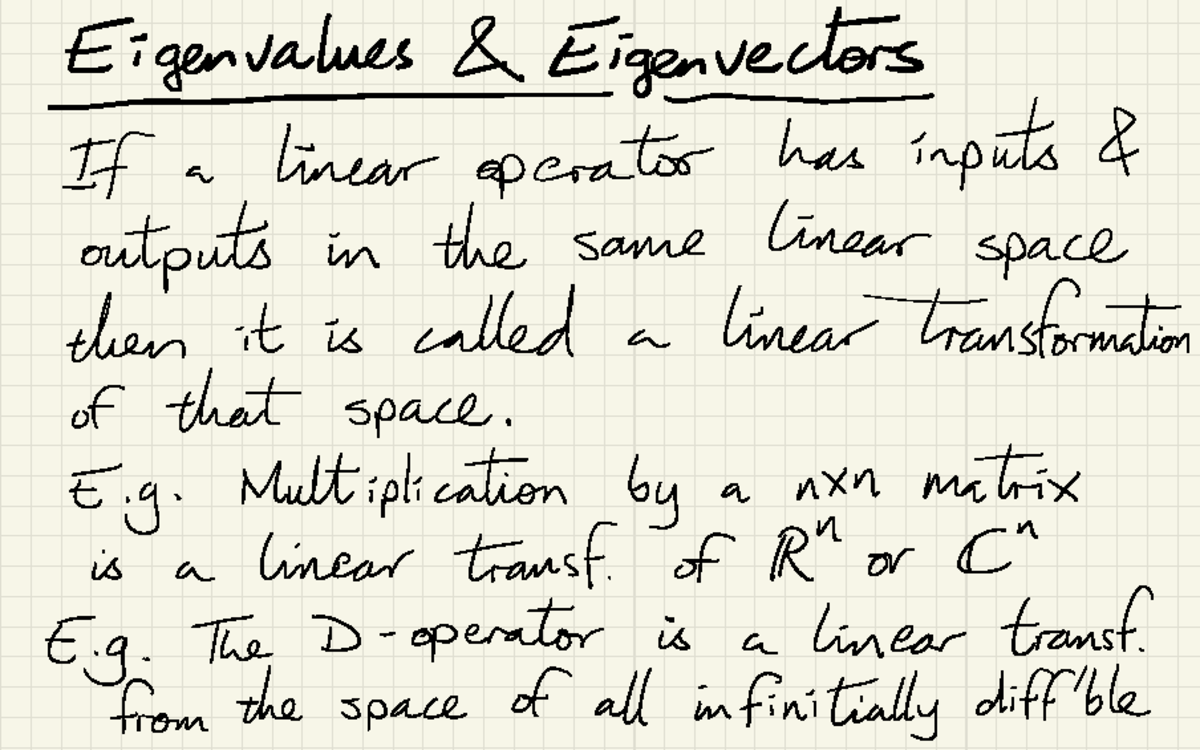 Eigenvalues & Eigenvectors
If a linear operator has inputs &
outputs in the same linear space
then it is called a linear transformation
of that space.
E.g. Multiplication by a n×n matrix
is a linear transf. of ℝⁿ or ℂⁿ
E.g. The D-operator is a linear transf.
from the space of all infinitially diff'ble